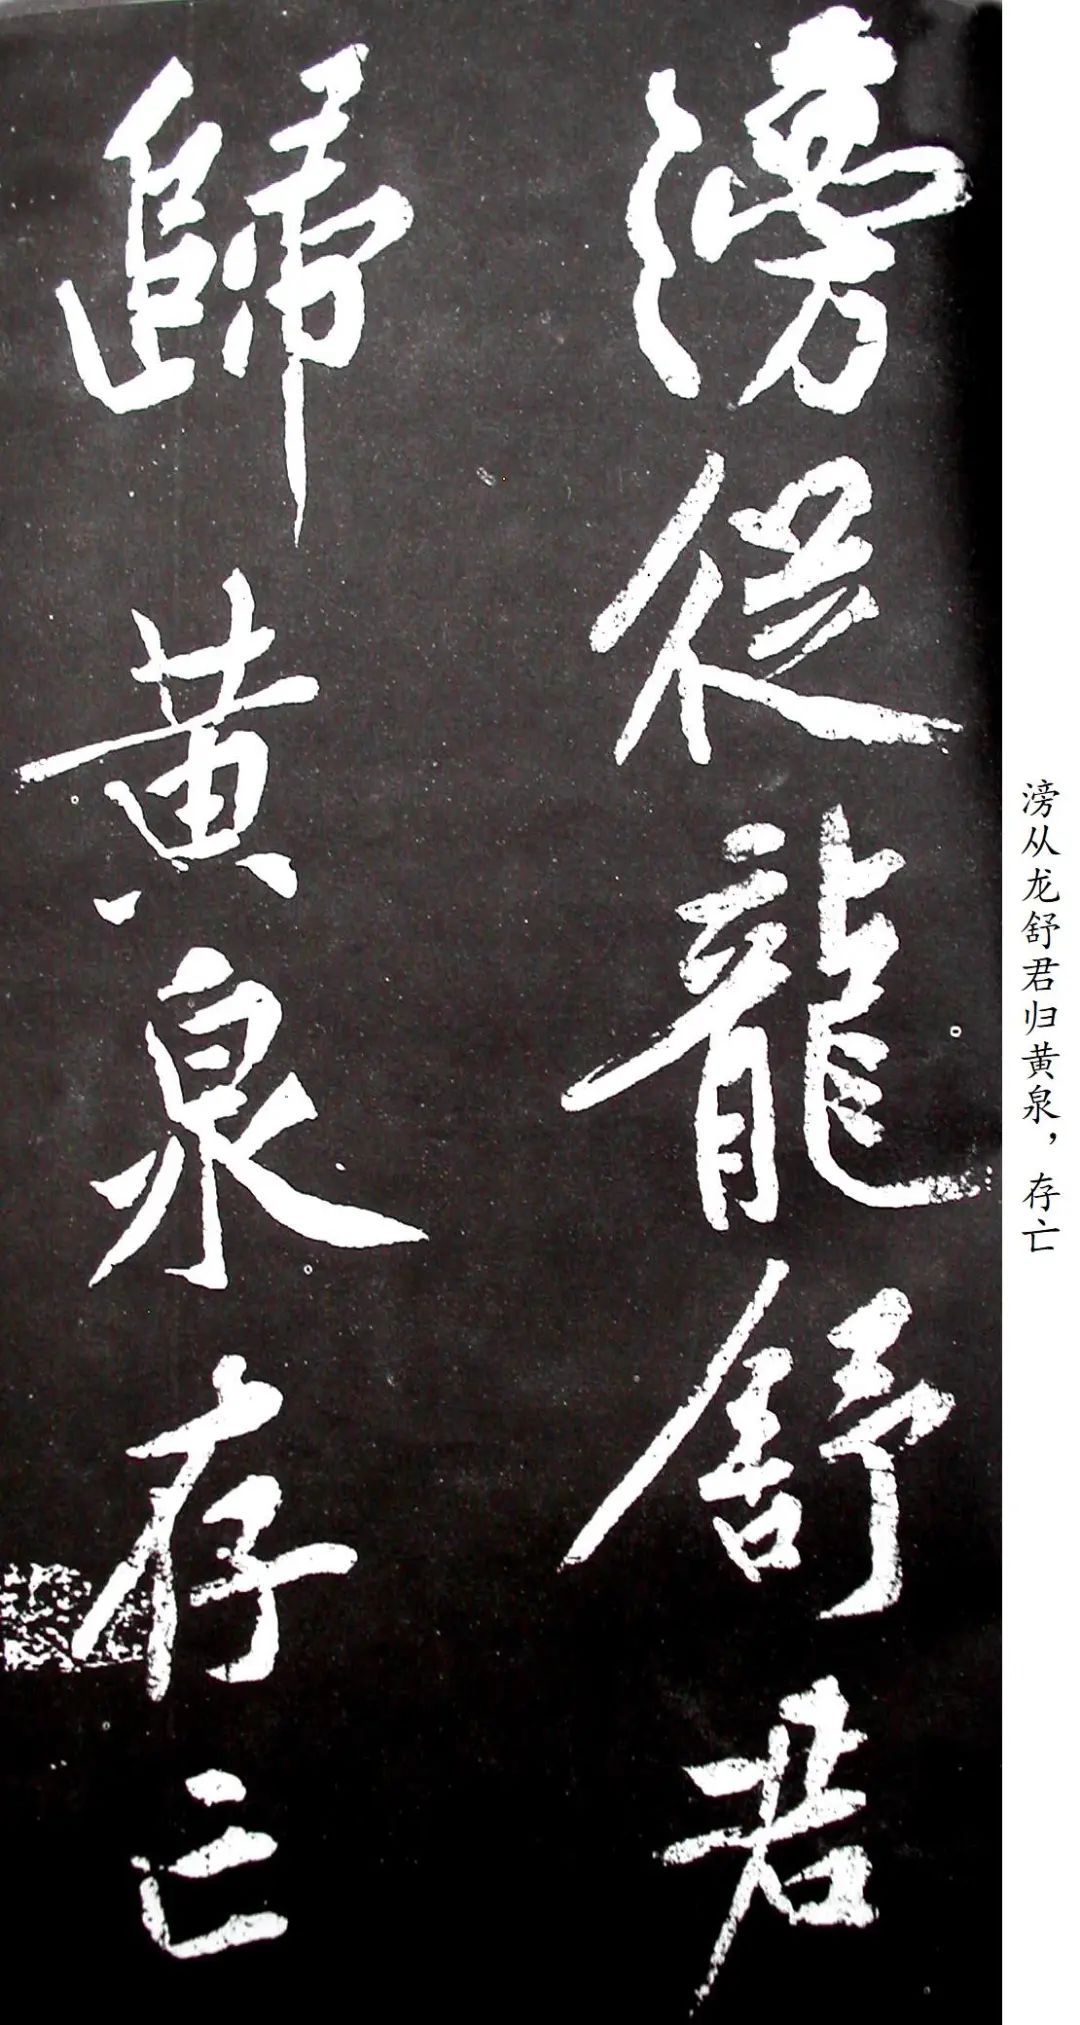 滂從龍舒君
歸黄泉存亡
滂从龙舒君归黄泉，存亡